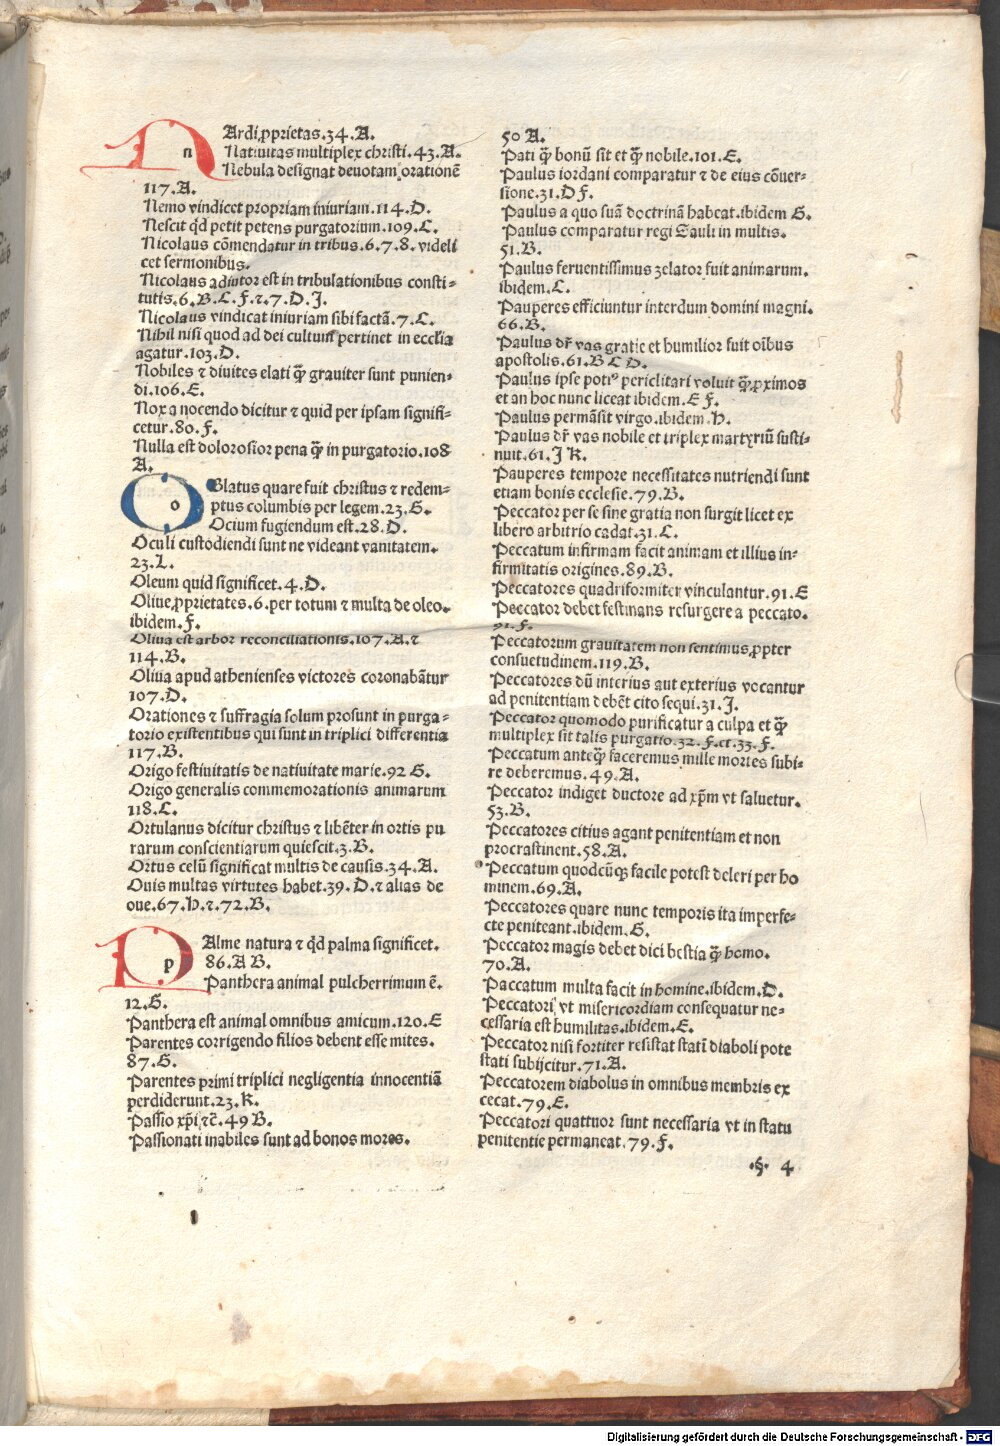 nArdi ꝓprietas.34.A.
Natiuitas multiplex christi.43.A.
Nebula designat deuotam orationē
117.A.
Nemo vindicet propriam iniuriam.114.D.
Nescit qd̄ petit petens purgatorium.109.C.
Nicolaus cōmendatur in tribus.6.7.8. videli
cet sermonibus.
Nicolaus adiutor est in tribulationibus consti-
tutis.6.B.C.F.⁊.7.D.J.
Nicolaus vindicat iniuriam sibi factā.7.C.
Nihil nisi quod ad dei cultum pertinet in ecclia
agatur.103.D.
Nobiles ⁊ diuites elati q̄ȝ grauiter sunt punien-
di.106.E.
Nox a nocendo dicitur ⁊ quid per ipsam signifi-
cetur.80.F.
Nulla est dolorosior pena q̄ȝ in purgatorio.108
A.
oBlatus quare fuit christus ⁊ redem-
ptus columbis per legem.23.G.
Ocium fugiendum est.28.D.
Oculi custodiendi sunt ne videant vanitatem.
23.L.
Oleum quid significet.4.D.
Oliue ꝓprietates.6.per totum ⁊ multa de oleo.
ibidem.F.
Oliua est arbor reconciliationis.107.A.⁊
114.B.
Oliua apud athenienses victores coronabātur
107.D.
Orationes ⁊ suffragia solum prosunt in purga-
torio existentibus qui sunt in triplici differentia
117.B.
Origo festiuitatis de natiuitate marie.92 G.
Origo generalis commemorationis animarum
118.C.
Ortulanus dicitur christus ⁊ libēter in ortis pu
rarum conscientiarum quiescit.3.B.
Ortus celū significat multis de causis.34.A.
Ouis multas virtutes habet.39.D.⁊ alias de
oue.67.H.⁊.72.B.
pAlme natura ⁊ qd̄ palma significet.
86.A B.
Panthera animal pulcherrimum ē.
12.G.
Panthera est animal omnibus amicum.120.E
Parentes corrigendo filios debent esse mites.
87.G.
Parentes primi triplici negligentia innocentiā
perdiderunt.23.K.
Passio xp̄i ⁊c̄.49 B.
Passionati inabiles sunt ad bonos mores.
50 A.
Pati q̄ȝ bonū sit et q̄ȝ nobile.101.E.
Paulus iordani comparatur ⁊ de eius cōuer-
sione.31.D F.
Paulus a quo suā doctrinā habeat.ibidem G.
Paulus comparatur regi Sauli in multis.
51.B.
Paulus feruentissimus zelator fuit animarum.
ibidem.C.
Pauperes efficiuntur interdum domini magni.
66.B.
Paulus dr̄ vas gratie et humilior fuit oībus
apostolis.61.B C D.
Paulus ipse potiꝰ periclitari voluit q̄ȝ ꝓximos
et an hoc nunc liceat ibidem.E F.
Paulus permāsit virgo.ibidem.H.
Paulus dr̄ vas nobile et triplex martyriū susti-
nuit.61.J K.
Pauperes tempore necessitates nutriendi sunt
etiam bonis ecclesie.79.B.
Peccator per se sine gratia non surgit licet ex
libero arbitrio cadat.31.C.
Peccatum infirmam facit animam et illius in-
firmitatis origines.89.B.
Peccatores quadriformiter vinculantur.91.E
Peccator debet festinans resurgere a peccato.
91.F.
Peccatorum grauitatem non sentimus ꝓpter
consuetudinem.119.B.
Peccatores dū interius aut exterius vocantur
ad penitentiam debēt cito sequi.31.J.
Peccator quomodo purificatur a culpa et q̄ȝ
multiplex sit talis purgatio.32.F.et.33.F.
Peccatum anteq̄ȝ faceremus mille mortes subi-
re deberemus.49.A.
Peccator indiget ductore ad xp̄m vt saluetur.
53.B.
Peccatores citius agant penitentiam et non
procrastinent.58.A.
Peccatum quodcūqꝫ facile potest deleri per ho
minem.69.A.
Peccatores quare nunc temporis ita imperfe-
cte peniteant.ibidem.G.
Peccator magis debet dici bestia q̄ȝ homo.
70.A.
Paccatum multa facit in homine.ibidem.D.
Peccatori vt misericordiam consequatur ne-
cessaria est humilitas.ibidem.E.
Peccator nisi fortiter resistat statī diaboli pote
stati subijcitur.71.A.
Peccatorem diabolus in omnibus membris ex
cecat.79.E.
Peccatori quattuor sunt necessaria vt in statu
penitentie permaneat.79.F.
.§. 4
Digitalisierung gefördert durch die Deutsche Forschungsgemeinschaft - DFG